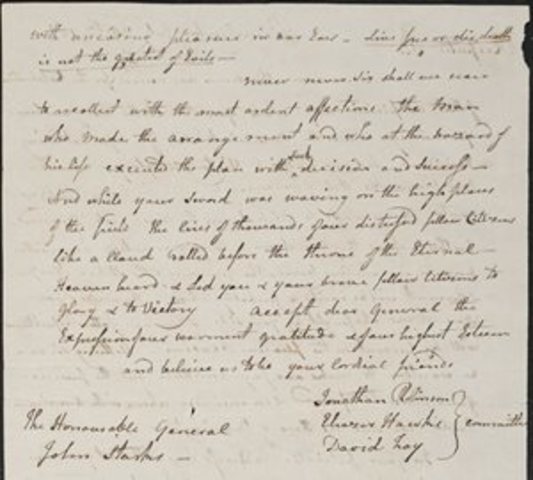 with unceasing pleasure in our Ears – Live free or die, death
is not the greatest of Evils –
never never Sir shall we cease
to recollect with the most ardent affections the Man
who made the arrangement and who at the hazard of
his life executed the plan with such decision and Success –
And while your Sword was waving on the high places
of the field the cries of thousands of our distressed fellow Citizens
like a Cloud rolled before the throne of the Eternal –
Heaven heard & Led you & your brave fellow Citizens to
Glory & to Victory Accept dear General the
Expression of our warmest gratitude & of our highest Esteem
and believe us to be your Cordial friends
Jonathan Robinson
Eliezer Hawks
David Fay
committee
The Honourable General
John Starks –